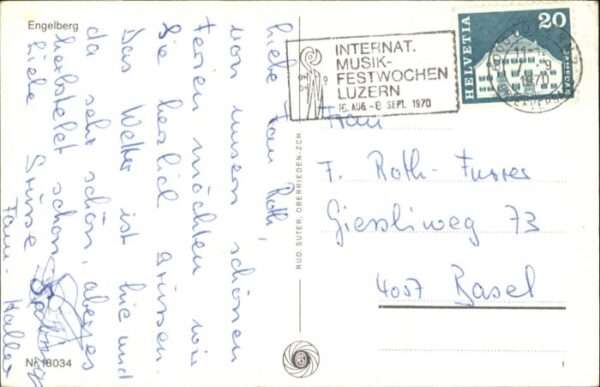 Engelberg
Liebe Frau Roth,
von unsern schönen
Ferien möchten wir
Sie herzlich grüssen.
Das Wetter ist hie und
da sehr schön, aber es
herbstelet schon.
Liebe Grüsse
Fam. Haller
Nr. 18034
RUD. SUTER, OBERRIEDEN-ZCH
INTERNAT.
MUSIK-
FESTWOCHEN
LUZERN
16. AUG. - 8 SEPT. 1970
HELVETIA
20
11-9
1970
Frau
F. Roth-Furrer
Giessliweg 73
4057 Basel